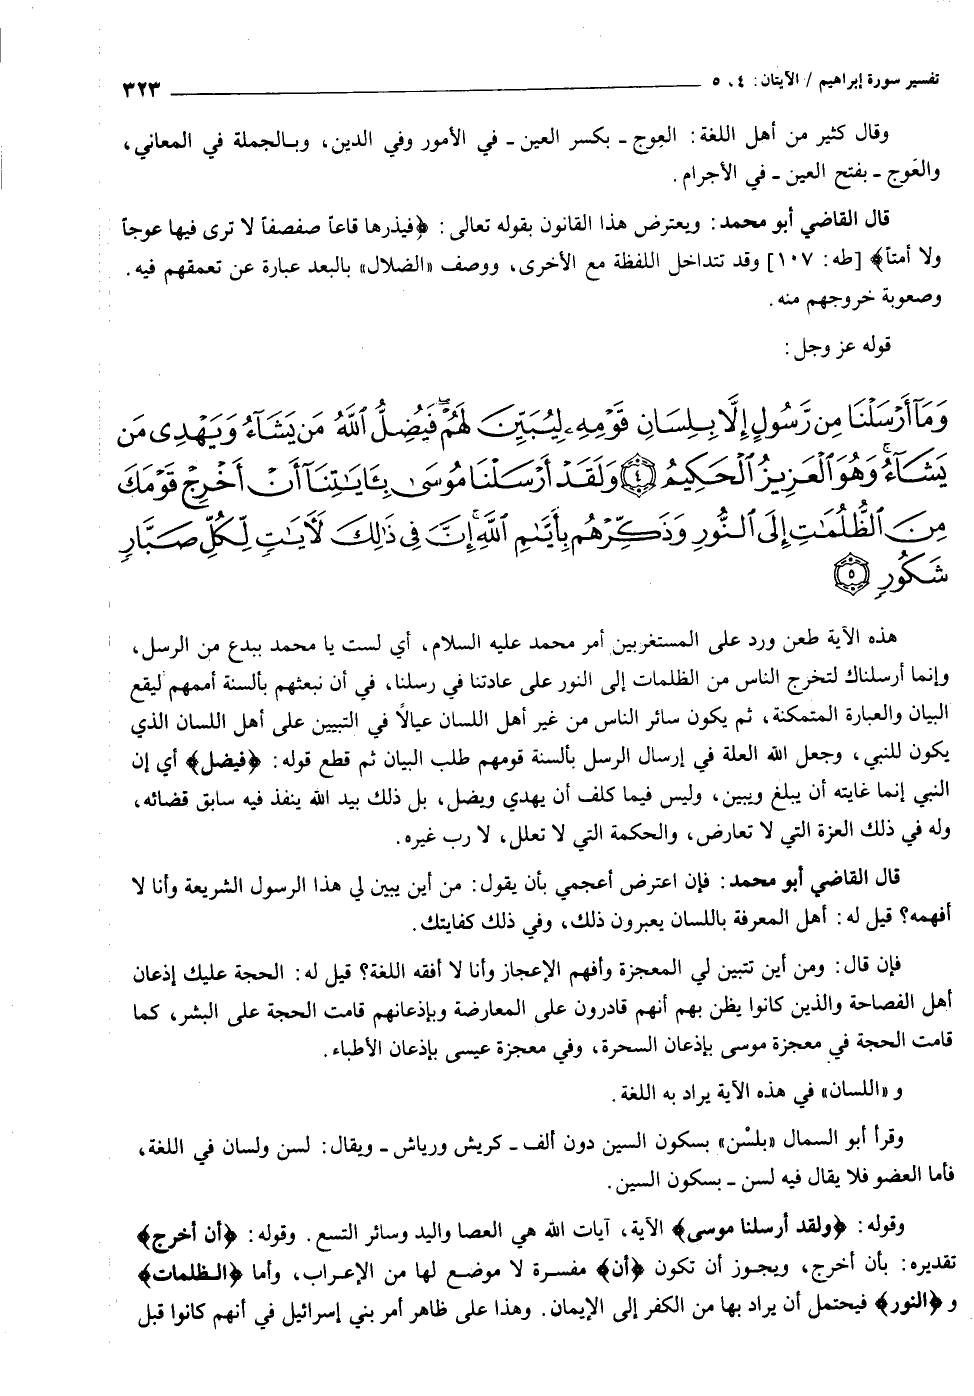 تفسير سورة إبراهيم / الآيتان: ٤، ٥ ٣٢٣
وقال كثير من أهل اللغة: العِوج ـ بكسر العين ـ في الأمور وفي الدين، وبالجملة في المعاني،
والعَوج ـ بفتح العين ـ في الأجرام.
قال القاضي أبو محمد: ويعترض هذا القانون بقوله تعالى: ﴿فيذرها قاعاً صفصفاً لا ترى فيها عوجاً
ولا أمتاً﴾ [طه: ١٠٧] وقد تتداخل اللفظة مع الأخرى، ووصف «الضلال» بالبعد عبارة عن تعمقهم فيه.
وصعوبة خروجهم منه.
قوله عز وجل:
وَمَآ أَرْسَلْنَا مِن رَّسُولٍ إِلَّا بِلِسَانِ قَوْمِهِۦ لِيُبَيِّنَ لَهُمْ ۖ فَيُضِلُّ ٱللَّهُ مَن يَشَآءُ وَيَهْدِى مَن
يَشَآءُ ۚ وَهُوَ ٱلْعَزِيزُ ٱلْحَكِيمُ ﴿٤﴾ وَلَقَدْ أَرْسَلْنَا مُوسَىٰ بِـَٔايَٰتِنَآ أَنْ أَخْرِجْ قَوْمَكَ
مِنَ ٱلظُّلُمَٰتِ إِلَى ٱلنُّورِ وَذَكِّرْهُم بِأَيَّىٰمِ ٱللَّهِ ۚ إِنَّ فِى ذَٰلِكَ لَءَايَٰتٍ لِّكُلِّ صَبَّارٍ
شَكُورٍ ﴿٥﴾
هذه الآية طعن ورد على المستغربين أمر محمد عليه السلام، أي لست يا محمد ببدع من الرسل،
وإنما أرسلناك لتخرج الناس من الظلمات إلى النور على عادتنا في رسلنا، في أن نبعثهم بألسنة أممهم ليقع
البيان والعبارة المتمكنة، ثم يكون سائر الناس من غير أهل اللسان عيالًا في التبيين على أهل اللسان الذي
يكون للنبي، وجعل الله العلة في إرسال الرسل بألسنة قومهم طلب البيان ثم قطع قوله: ﴿فيضل﴾ أي إن
النبي إنما غايته أن يبلغ ويبين، وليس فيما كلف أن يهدي ويضل، بل ذلك بيد الله ينفذ فيه سابق قضائه،
وله في ذلك العزة التي لا تعارض، والحكمة التي لا تعلل، لا رب غيره.
قال القاضي أبو محمد: فإن اعترض أعجمي بأن يقول: من أين يبين لي هذا الرسول الشريعة وأنا لا
أفهمه؟ قيل له: أهل المعرفة باللسان يعبرون ذلك، وفي ذلك كفايتك.
فإن قال: ومن أين تتبين لي المعجزة وأفهم الإعجاز وأنا لا أفقه اللغة؟ قيل له: الحجة عليك إذعان
أهل الفصاحة والذين كانوا يظن بهم أنهم قادرون على المعارضة وبإذعانهم قامت الحجة على البشر، كما
قامت الحجة في معجزة موسى بإذعان السحرة، وفي معجزة عيسى بإذعان الأطباء.
و «اللسان» في هذه الآية يراد به اللغة.
وقرأ أبو السمال «بلسْن» بسكون السين دون ألف ـ كريش ورياش ـ ويقال: لسن ولسان في اللغة،
فأما العضو فلا يقال فيه لسن ـ بسكون السين.
وقوله: ﴿ولقد أرسلنا موسى﴾ الآية، آيات الله هي العصا واليد وسائر التسع. وقوله: ﴿أن أخرج﴾
تقديره: بأن أخرج، ويجوز أن تكون ﴿أن﴾ مفسرة لا موضع لها من الإعراب، وأما ﴿الظلمات﴾
و ﴿النور﴾ فيحتمل أن يراد بها من الكفر إلى الإيمان. وهذا على ظاهر أمر بني إسرائيل في أنهم كانوا قبل